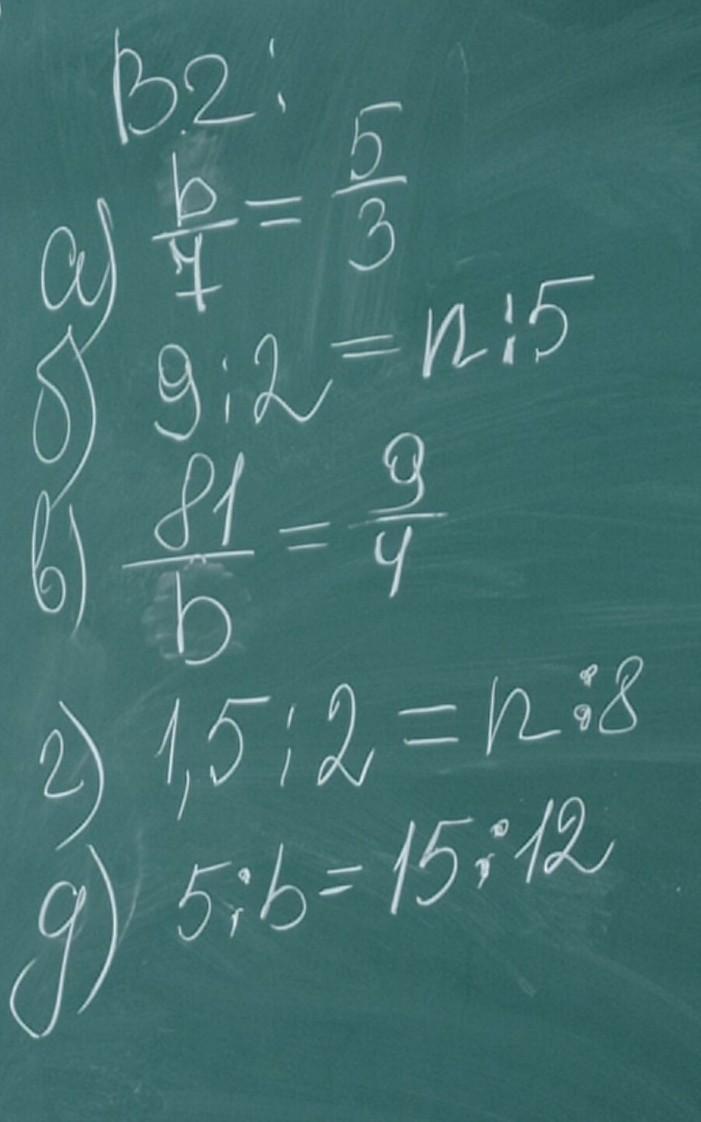 В.2:
а) b/7 = 5/3
б) 9:2 = n:5
в) 81/b = 9/4
г) 1,5:2 = n:8
д) 5:b = 15:12